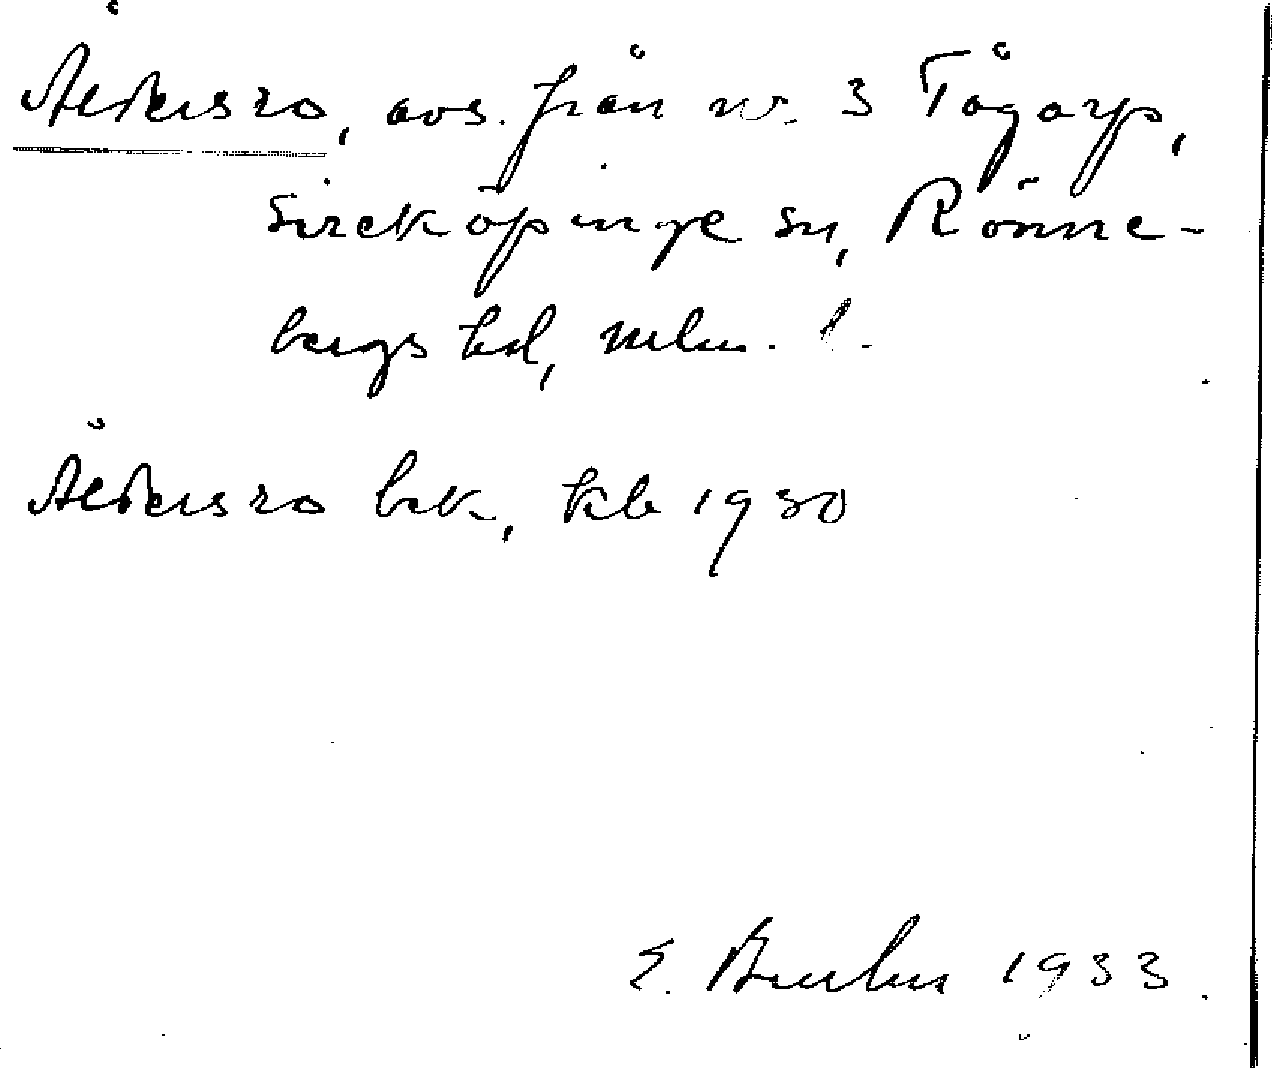 Åldersro, avs. från nr. 3 Tågarp,
Sireköpinge sn, Rönne-
bergs hd, Mlm. l.
Åldersro bek, kb 1930
E. 1933.